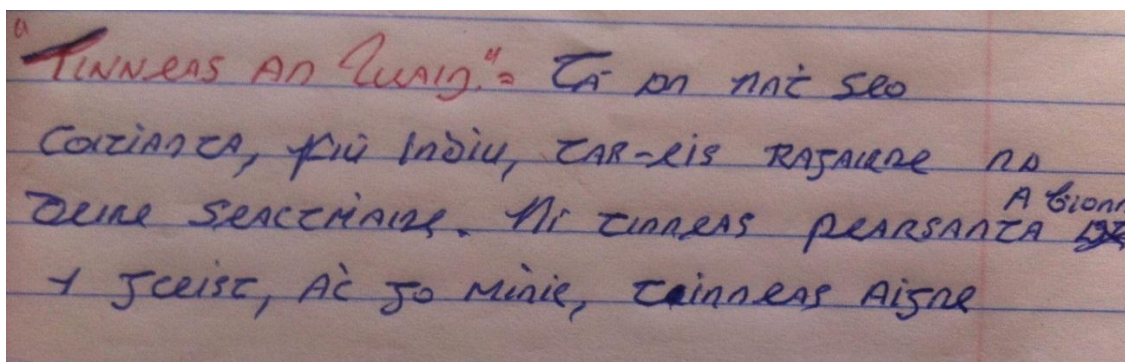 "Tinneas an Luain".= Tá an naṫ seo
coitianta, fiú inḋiu, tar-eis ragairne na
deire seaċtṁaine. Ni tinneas pearsanta a ḃionn
i gceist, aċ go minic, tinneas aigne